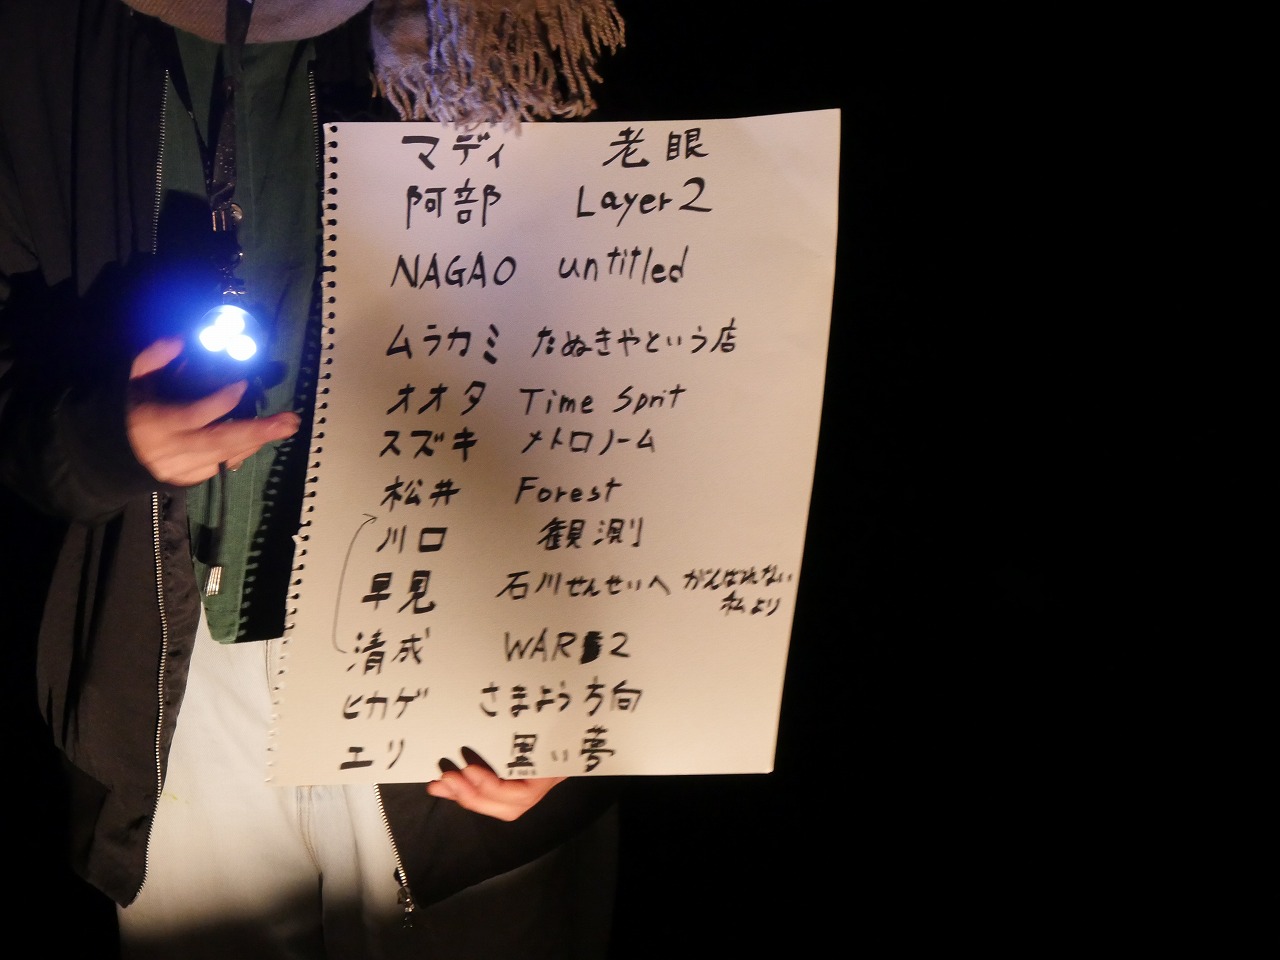 マディ 老眼
阿部 Layer2
NAGAO untitled
ムラカミ たぬきやという店
オオタ Time Sprit
スズキ メトロノーム
松井 Forest
川口 観測
早見 石川せんせいへ がんばれない
私より
清成 WAR 2
ヒカゲ さまよう方向
エリ 黒い夢